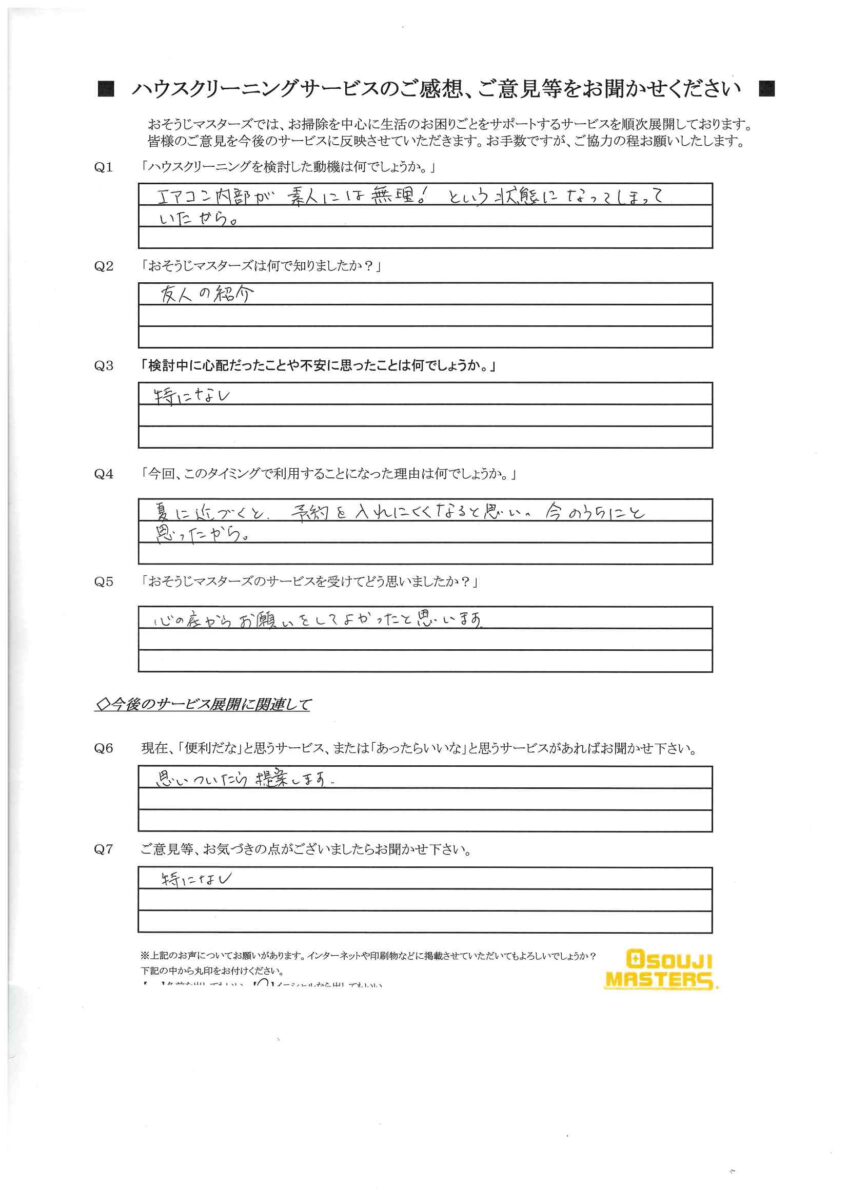 ■ ハウスクリーニングサービスのご感想、ご意見等をお聞かせください ■
おそうじマスターズでは、お掃除を中心に生活のお困りごとをサポートするサービスを順次展開しております。
皆様のご意見を今後のサービスに反映させていただきます。お手数ですが、ご協力の程お願いしたします。
Q1 「ハウスクリーニングを検討した動機は何でしょうか。」
エアコン内部が 素人には無理! という状態になってしまって
いたから。
Q2 「おそうじマスターズは何で知りましたか？」
友人の紹介
Q3 「検討中に心配だったことや不安に思ったことは何でしょうか。」
特になし
Q4 「今回、このタイミングで利用することになった理由は何でしょうか。」
夏に近づくと、予約を入れにくくなると思い。今のうちにと
思ったから。
Q5 「おそうじマスターズのサービスを受けてどう思いましたか？」
心の底からお願いをしてよかったと思います
◇今後のサービス展開に関連して
Q6 現在、「便利だな」と思うサービス、または「あったらいいな」と思うサービスがあればお聞かせ下さい。
思いついたら提案します.
Q7 ご意見等、お気づきの点がございましたらお聞かせ下さい。
特になし
※上記のお声についてお願いがあります。インターネットや印刷物などに掲載させていただいてもよろしいでしょうか？
下記の中から丸印をお付けください。
OSOUJI
MASTERS.